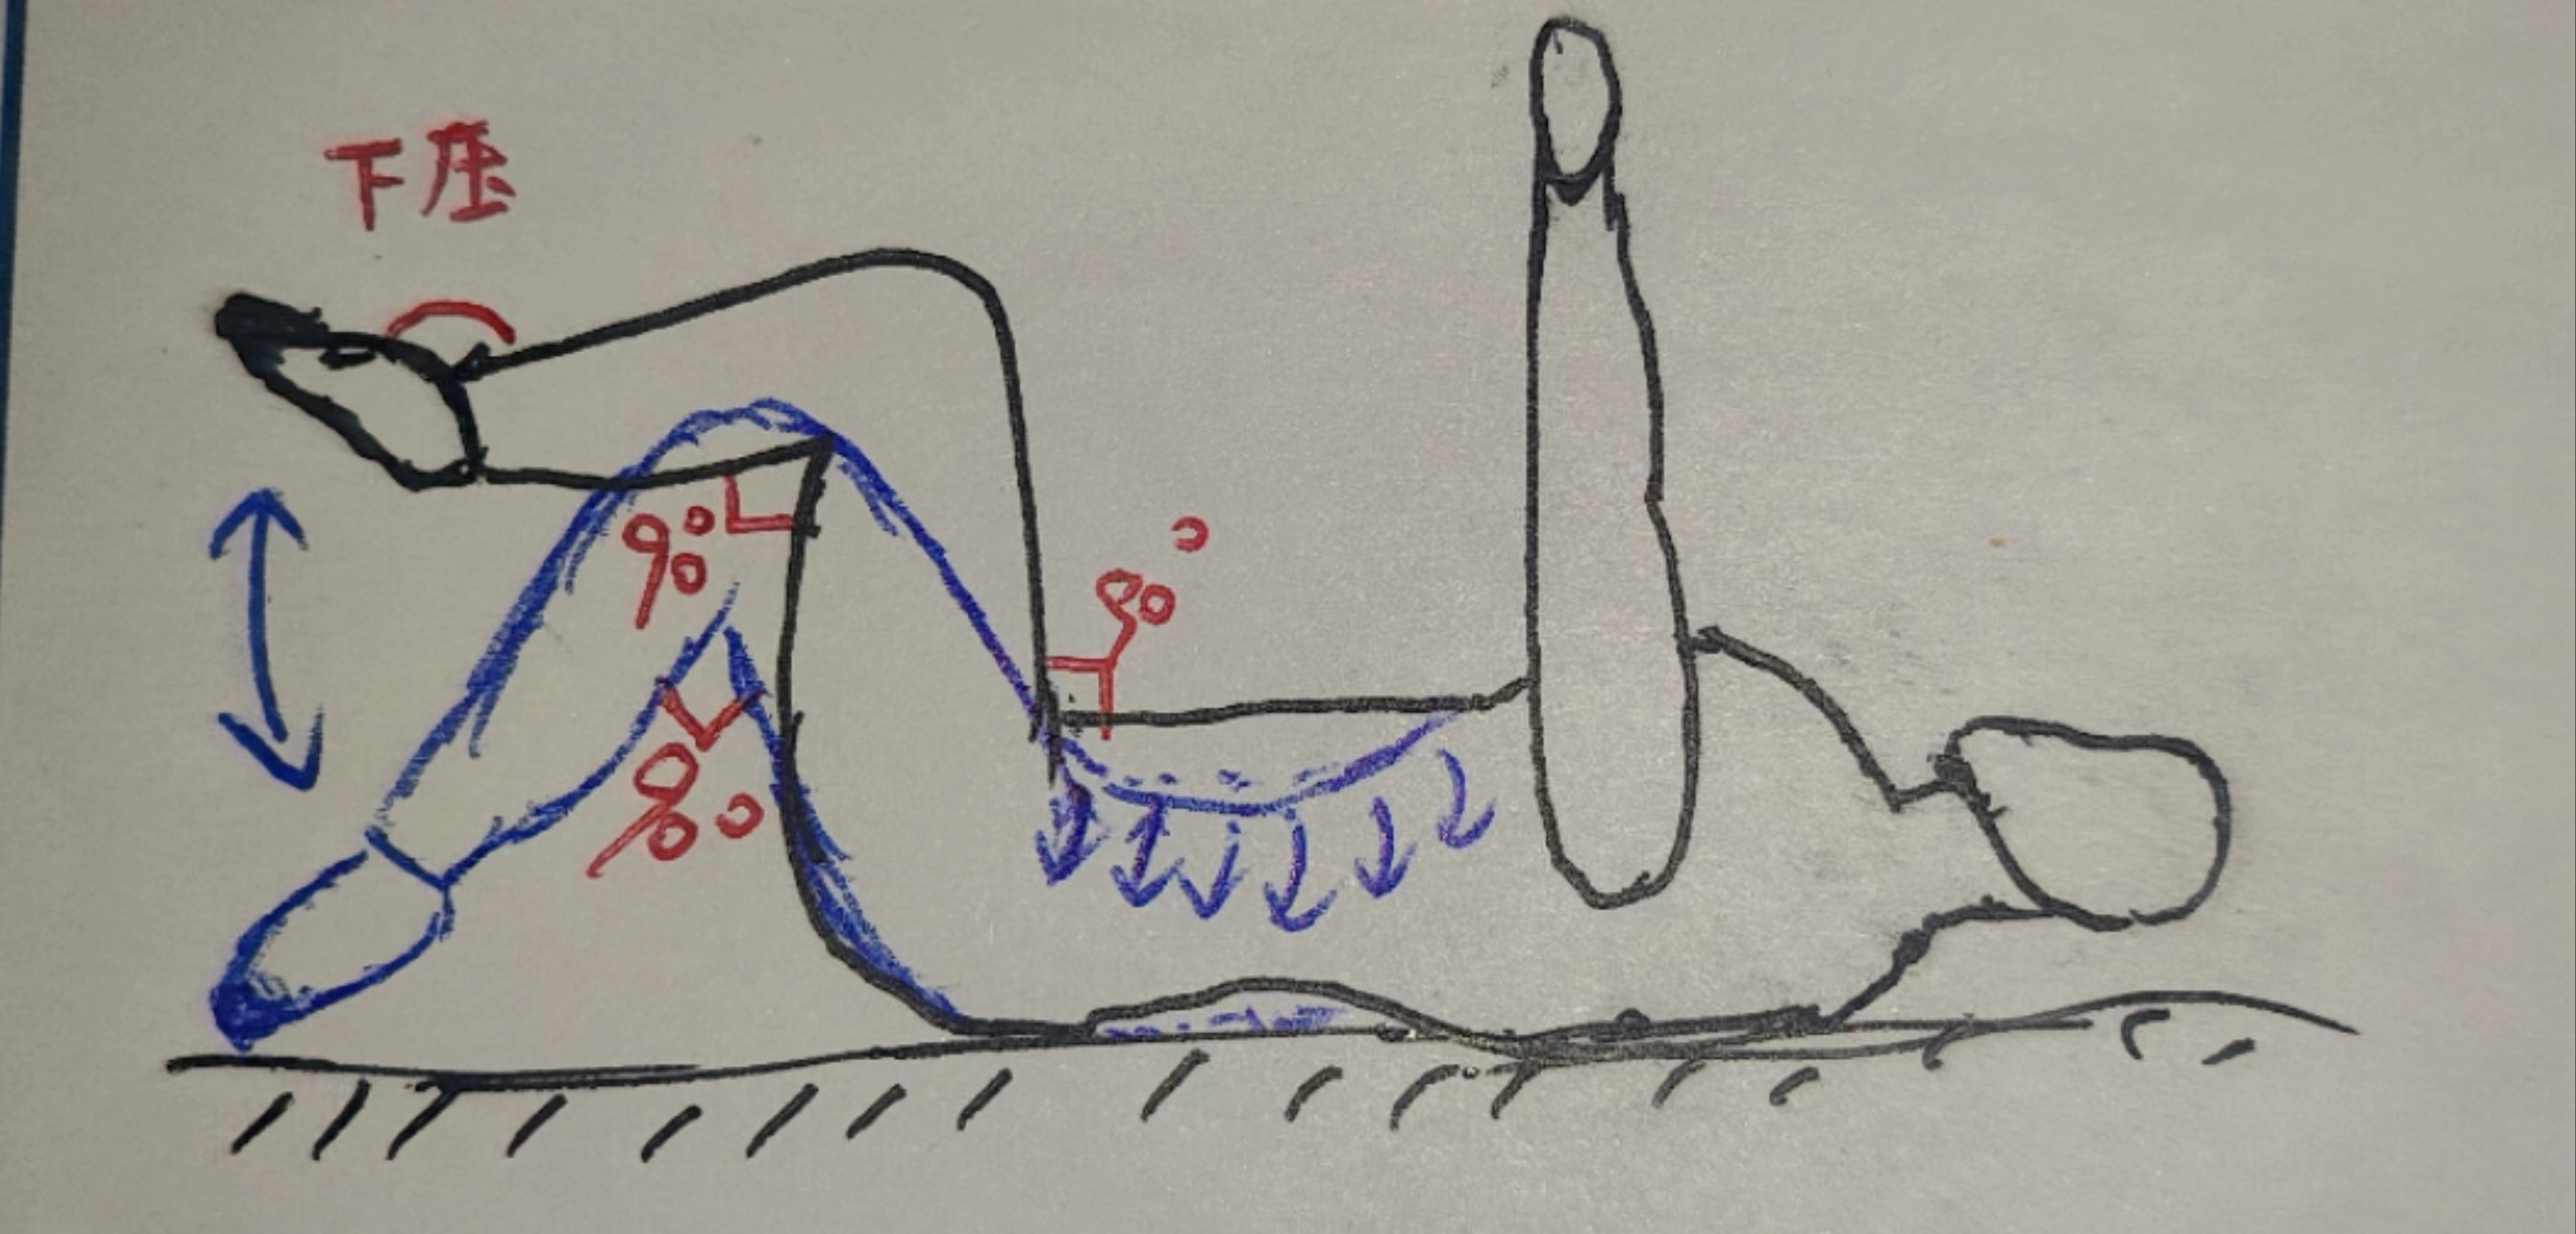 下压
90°
90°
90°